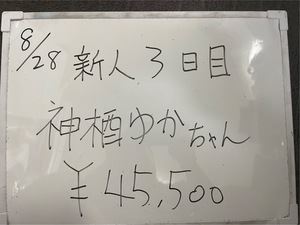 8/28 新人3日目
神栖ゆかちゃん
¥45,500